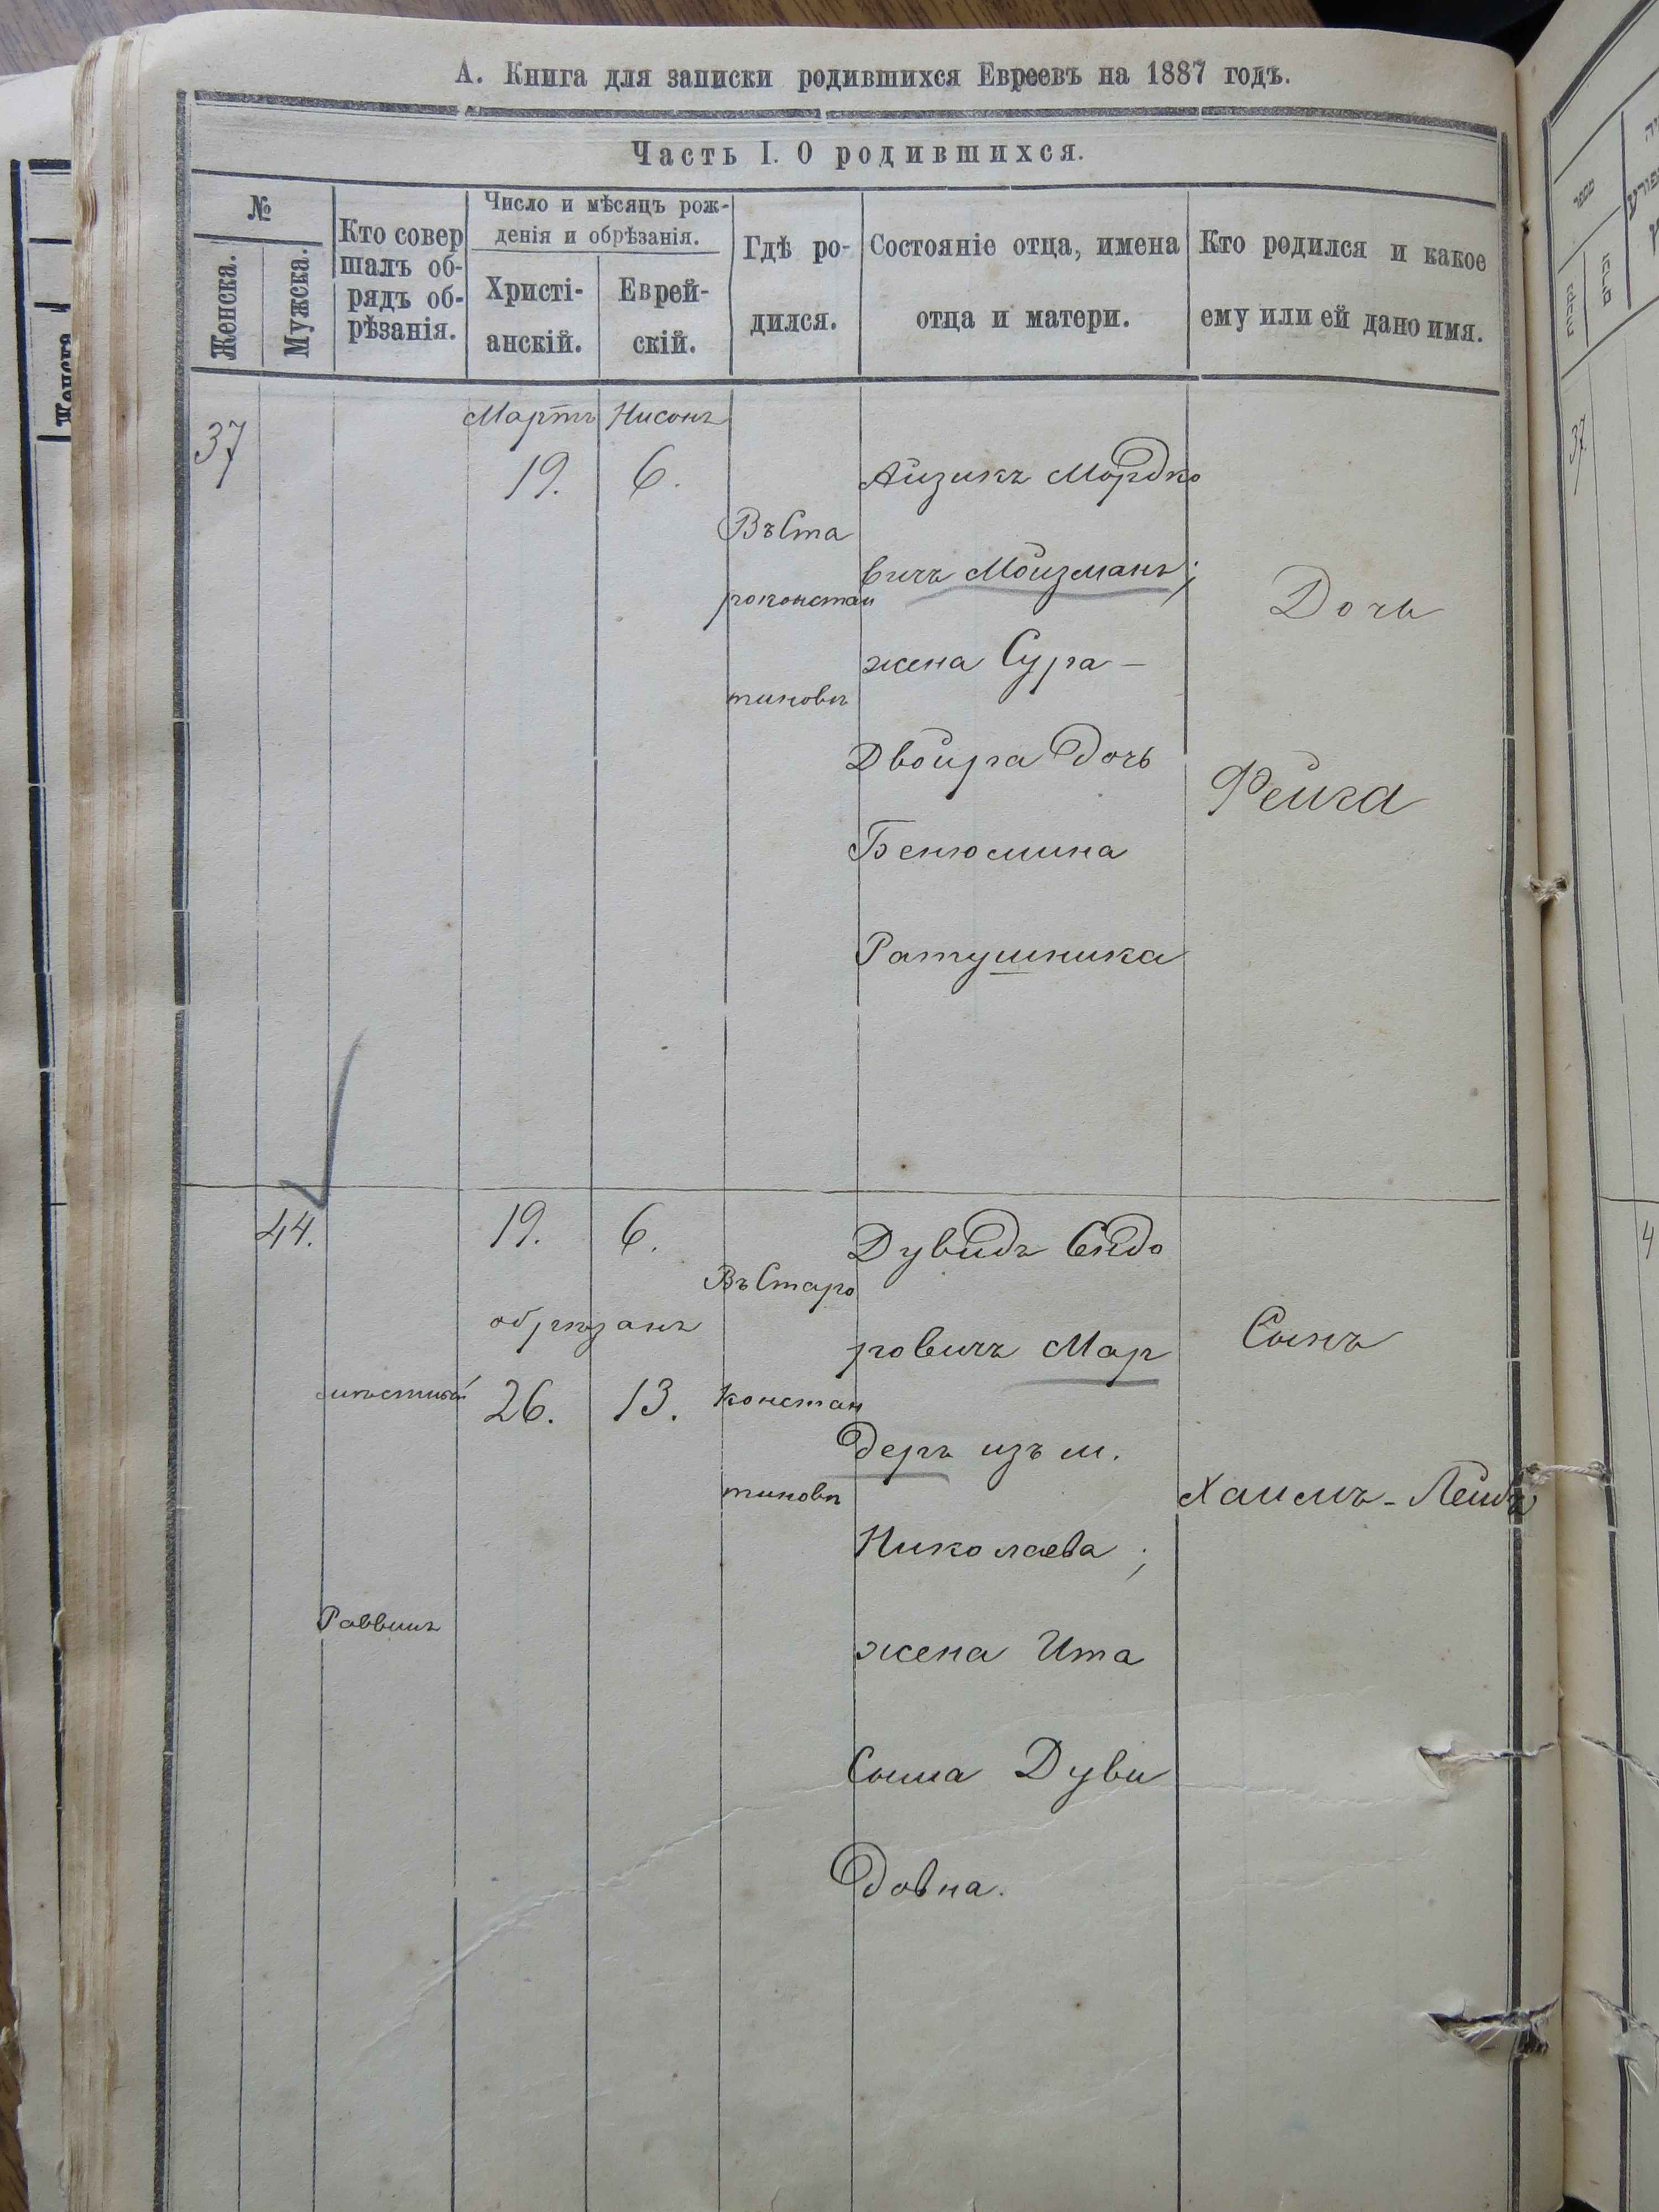 А. Книга для записки родившихся Евреевъ на 1887 годъ.
Часть I. О родившихся.
№
Женска.
Мужска.
Кто совер
шалъ об-
рядъ об-
рѣзанія.
Число и мѣсяцъ рож-
денія и обрѣзанія.
Христі-
анскій.
Еврей-
скій.
Гдѣ ро-
дился.
Состояніе отца, имена
отца и матери.
Кто родился и какое
ему или ей дано имя.
37
Мартъ
19.
Нисонъ
6.
Въ Ста
роконстан
тиновѣ
Айзикъ Мордко
вичъ Мойзманъ;
жена Сура-
Двойра дочь
Бенюмина
Ратушника
Дочь
Фейга
44.
Раввинъ
19.
6.
обрѣзанъ
26.
13.
Въ Старо
констан
тиновѣ
Дувидъ
ровичъ Мар
деръ изъ м.
Николаева;
жена Ита
Сима Дуви
довна.
Сынъ
Хаимъ-Лейбъ
37
4